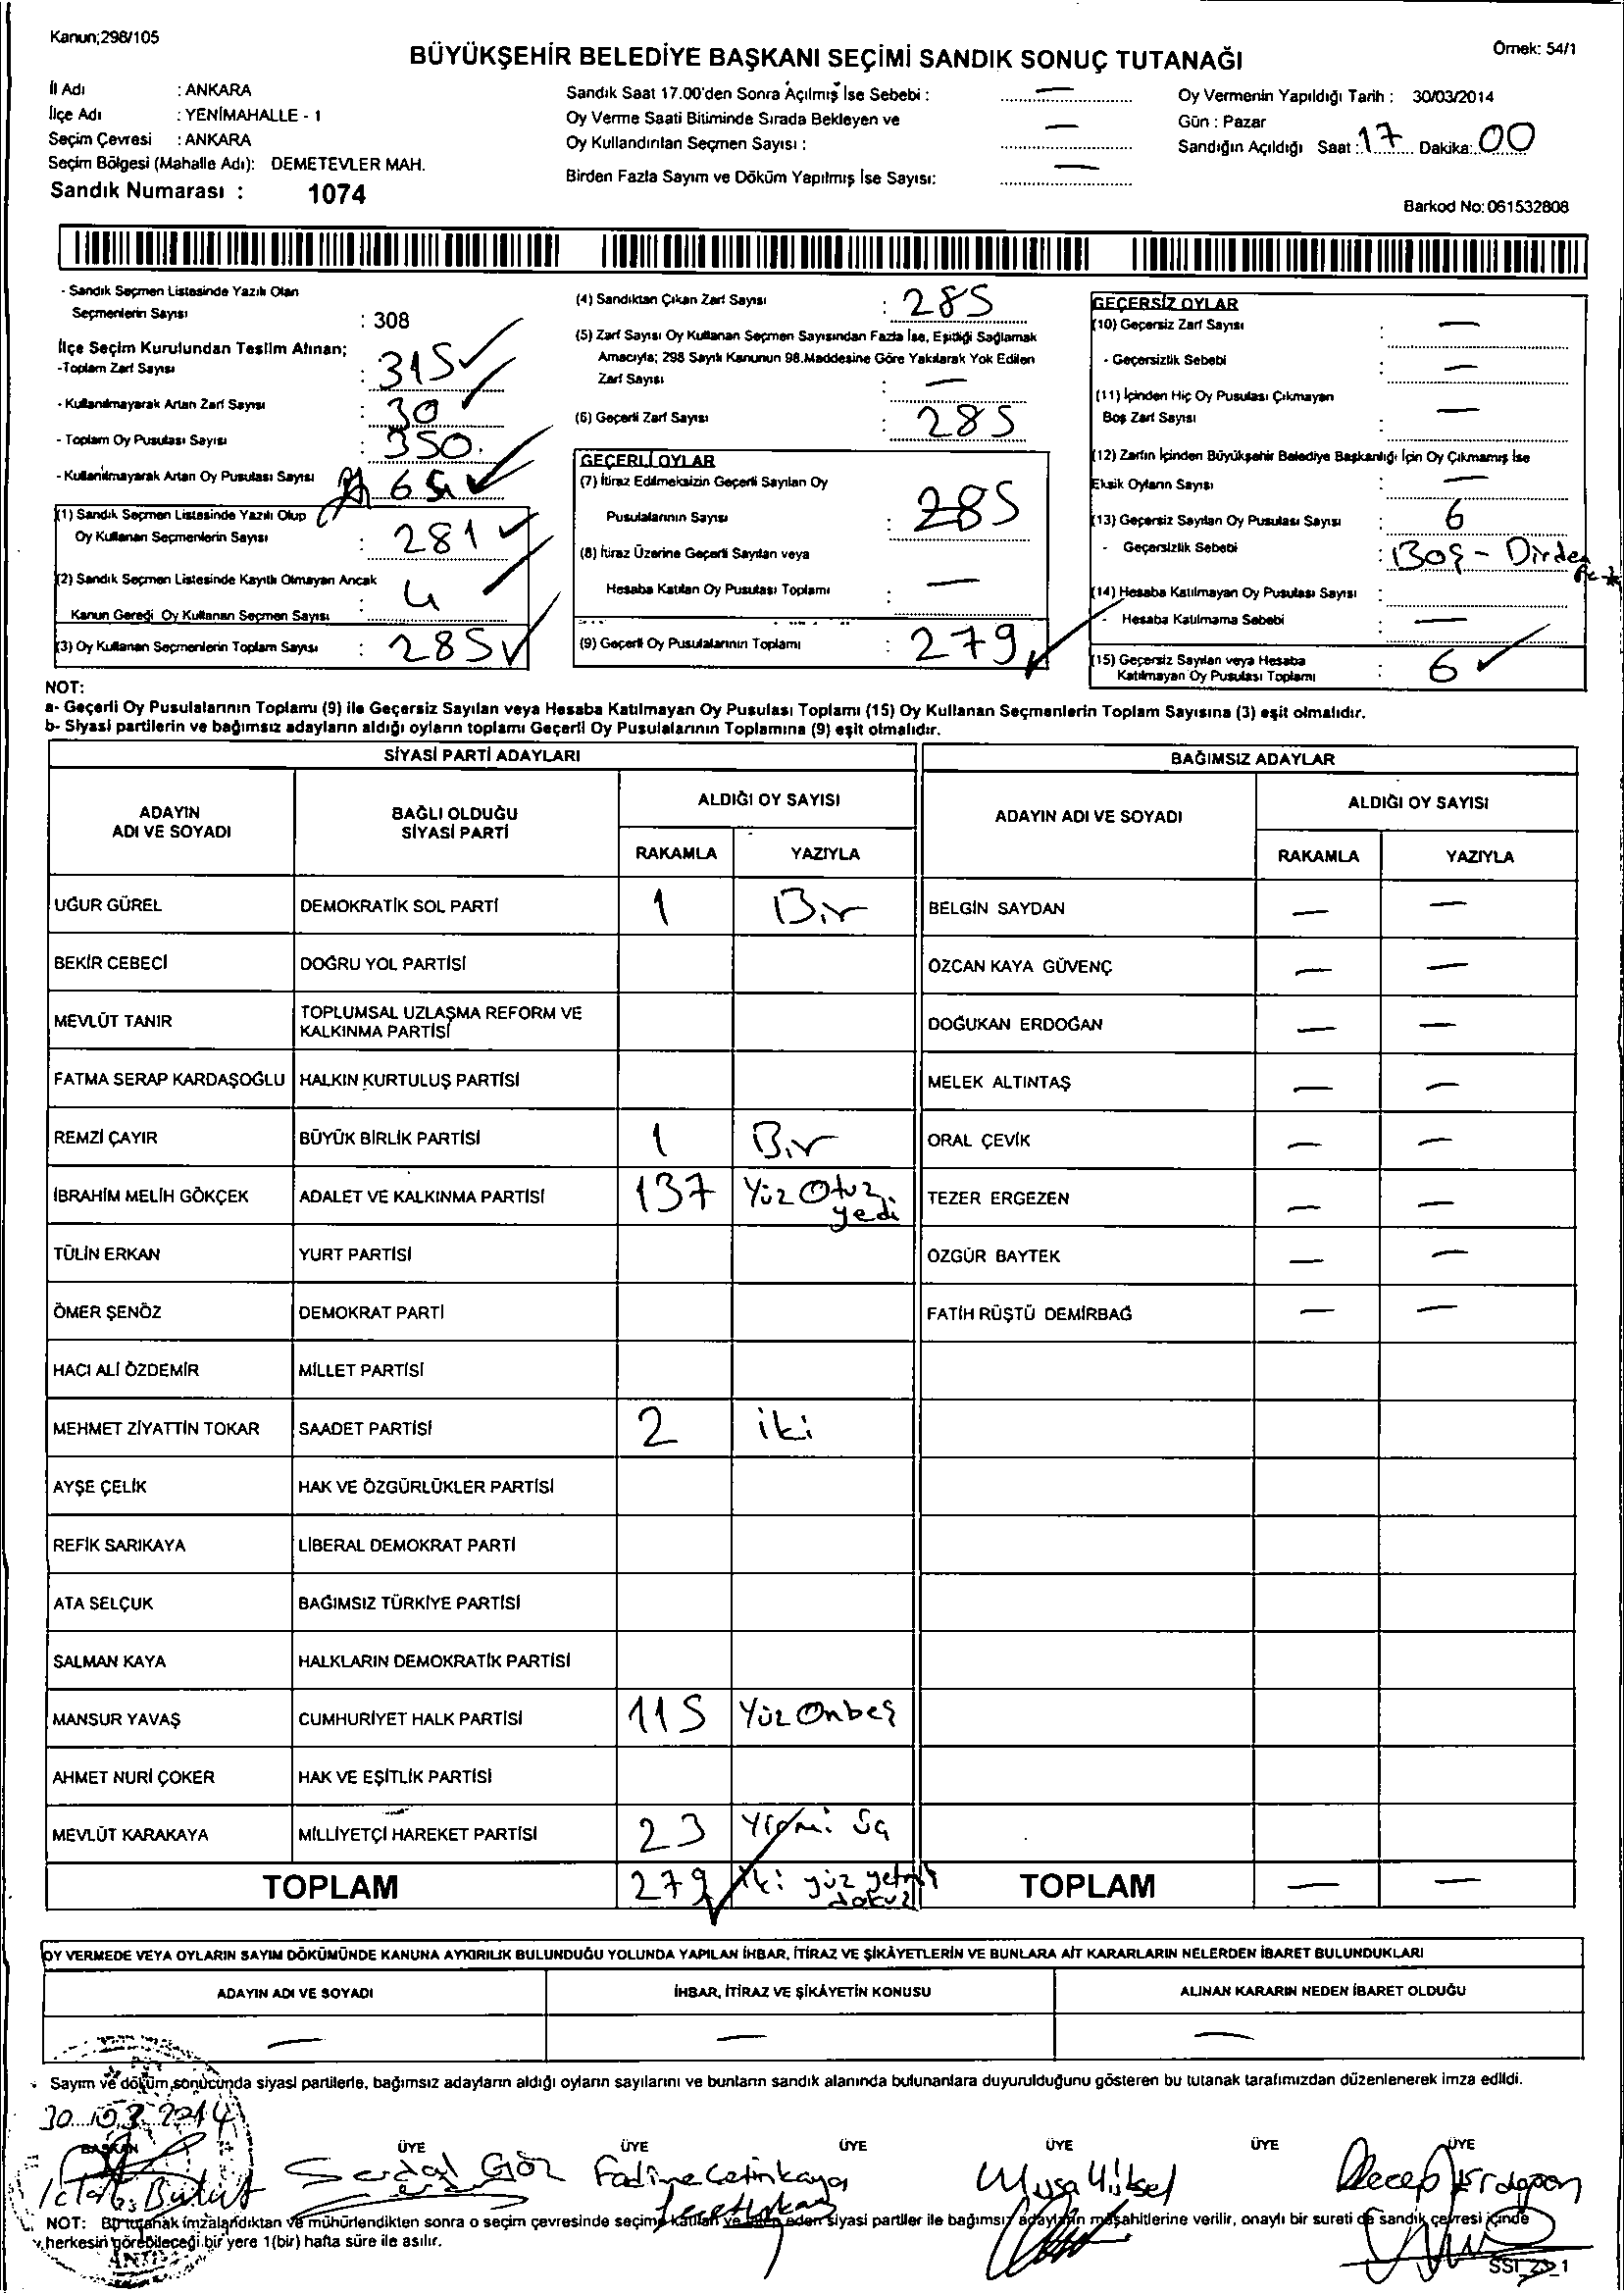 Kanun;298/105
Örnek: 54/1
BÜYÜKŞEHİR BELEDİYE BAŞKANI SEÇİMİ SANDIK SONUÇ TUTANAĞI
İl Adı : ANKARA
İlçe Adı : YENİMAHALLE - 1
Seçim Çevresi : ANKARA
Seçim Bölgesi (Mahalle Adı): DEMETEVLER MAH.
Sandık Numarası : 1074
Sandık Saat 17.00'den Sonra Açılmış İse Sebebi : —
Oy Verme Saati Bitiminde Sırada Bekleyen ve
Oy Kullandırılan Seçmen Sayısı : —
Birden Fazla Sayım ve Döküm Yapılmış İse Sayısı: —
Oy Vermenin Yapıldığı Tarih : 30/03/2014
Gün : Pazar
Sandığın Açıldığı Saat : 17 Dakika: 00
Barkod No: 061532808
- Sandık Seçmen Listesinde Yazılı Olan
Seçmenlerin Sayısı : 308
İlçe Seçim Kurulundan Teslim Alınan;
-Toplam Zarf Sayısı : 315
- Kullanılmayarak Artan Zarf Sayısı : 30
- Toplam Oy Pusulası Sayısı : 350
- Kullanılmayarak Artan Oy Pusulası Sayısı 65
(1) Sandık Seçmen Listesinde Yazılı Olup
Oy Kullanan Seçmenlerin Sayısı : 281
(2) Sandık Seçmen Listesinde Kayıtlı Olmayan Ancak
Kanun Geredi Oy Kullanan Seçmen Sayısı : 4
(3) Oy Kullanan Seçmenlerin Toplam Sayısı : 285
(4) Sandıktan Çıkan Zarf Sayısı : 285
(5) Zarf Sayısı Oy Kullanan Seçmen Sayısından Fazla İse, Eşitliği Sağlamak
Amacıyla; 298 Sayılı Kanunun 98.Maddesine Göre Yakılarak Yok Edilen
Zarf Sayısı : —
(6) Geçerli Zarf Sayısı : 285
GEÇERLİ OYLAR
(7) İtiraz Edilmeksizin Geçerli Sayılan Oy
Pusulalarının Sayısı : 285
(8) İtiraz Üzerine Geçerli Sayılan veya
Hesaba Katılan Oy Pusulası Toplamı : —
(9) Geçerli Oy Pusulalarının Toplamı : 279
GEÇERSİZ OYLAR
(10) Geçersiz Zarf Sayısı : —
- Geçersizlik Sebebi : —
(11) İçinden Hiç Oy Pusulası Çıkmayan
Boş Zarf Sayısı : —
(12) Zarfın İçinden Büyükşehir Belediye Başkanlığı İçin Oy Çıkmamış İse
Eksik Oyların Sayısı : —
(13) Geçersiz Sayılan Oy Pusulası Sayısı : 6
- Geçersizlik Sebebi : Boş -
(14) Hesaba Katılmayan Oy Pusulası Sayısı :
- Hesaba Katılmama Sebebi : —
(15) Geçersiz Sayılan veya Hesaba
Katılmayan Oy Pusulası Toplamı : 6
NOT:
a- Geçerli Oy Pusulalarının Toplamı (9) ile Geçersiz Sayılan veya Hesaba Katılmayan Oy Pusulası Toplamı (15) Oy Kullanan Seçmenlerin Toplam Sayısına (3) eşit olmalıdır.
b- Siyasi partilerin ve bağımsız adayların aldığı oyların toplamı Geçerli Oy Pusulalarının Toplamına (9) eşit olmalıdır.
SİYASİ PARTİ ADAYLARI
BAĞIMSIZ ADAYLAR
ADAYIN ADI VE SOYADI
BAĞLI OLDUĞU SİYASİ PARTİ
ALDIĞI OY SAYISI
RAKAMLA YAZIYLA
ADAYIN ADI VE SOYADI
ALDIĞI OY SAYISI
RAKAMLA YAZIYLA
UĞUR GÜREL DEMOKRATİK SOL PARTİ 1 Bir BELGİN SAYDAN — —
BEKİR CEBECİ DOĞRU YOL PARTİSİ ÖZCAN KAYA GÜVENÇ — —
MEVLÜT TANIR TOPLUMSAL UZLAŞMA REFORM VE KALKINMA PARTİSİ DOĞUKAN ERDOĞAN — —
FATMA SERAP KARDAŞOĞLU HALKIN KURTULUŞ PARTİSİ MELEK ALTINTAŞ — —
REMZİ ÇAYIR BÜYÜK BİRLİK PARTİSİ 1 Bir ORAL ÇEVİK — —
İBRAHİM MELİH GÖKÇEK ADALET VE KALKINMA PARTİSİ 137 Yüz Otuz yedi TEZER ERGEZEN — —
TÜLİN ERKAN YURT PARTİSİ ÖZGÜR BAYTEK — —
ÖMER ŞENÖZ DEMOKRAT PARTİ FATİH RÜŞTÜ DEMİRBAĞ — —
HACI ALİ ÖZDEMİR MİLLET PARTİSİ
MEHMET ZİYATTİN TOKAR SAADET PARTİSİ 2 iki
AYŞE ÇELİK HAK VE ÖZGÜRLÜKLER PARTİSİ
REFİK SARIKAYA LİBERAL DEMOKRAT PARTİ
ATA SELÇUK BAĞIMSIZ TÜRKİYE PARTİSİ
SALMAN KAYA HALKLARIN DEMOKRATİK PARTİSİ
MANSUR YAVAŞ CUMHURİYET HALK PARTİSİ 115 Yüz Onbeş
AHMET NURİ ÇOKER HAK VE EŞİTLİK PARTİSİ
MEVLÜT KARAKAYA MİLLİYETÇİ HAREKET PARTİSİ 23
TOPLAM 279 iki yüz yetmiş dokuz TOPLAM — —
OY VERMEDE VEYA OYLARIN SAYIM DÖKÜMÜNDE KANUNA AYKIRILIK BULUNDUĞU YOLUNDA YAPILAN İHBAR, İTİRAZ VE ŞİKÂYETLERİN VE BUNLARA AİT KARARLARIN NELERDEN İBARET BULUNDUKLARI
ADAYIN ADI VE SOYADI İHBAR, İTİRAZ VE ŞİKÂYETİN KONUSU ALINAN KARARIN NEDEN İBARET OLDUĞU
— — —
Sayım ve döküm sonucunda siyasi partilerle, bağımsız adayların aldığı oyların sayılarını ve bunların sandık alanında bulunanlara duyurulduğunu gösteren bu tutanak tarafımızdan düzenlenerek imza edildi.
30.03.2014
BAŞKAN ÜYE ÜYE ÜYE ÜYE ÜYE ÜYE
Bulut Serdal Göz Fadime Çetinkaya Musa Yüksel Recep Erdoğan
NOT: Bu tutanak imzalandıktan ve mühürlendikten sonra o seçim çevresinde seçime katılan ve talep eden siyasi partiler ile bağımsız adayların müşahitlerine verilir, onaylı bir sureti de sandık çevresi içinde
herkesin görebileceği bir yere 1(bir) hafta süre ile asılır.